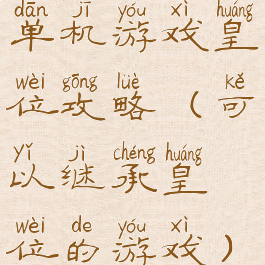 dān jī yóu xì huáng
单机游戏皇
wèi gōng lüè kě
位攻略（可
yǐ jì chéng huáng
以继承皇
wèi de yóu xì
位的游戏）